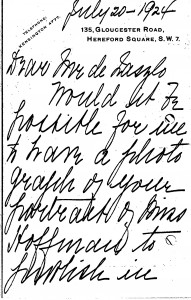 July 20 - 1924
TELEPHONE:
KENSINGTON 4777.
135, GLOUCESTER ROAD,
HEREFORD SQUARE, S.W.7.
Dear Mr de Laszlo
Would it be
possible for me
to have a photo
graph of your
portrait of Miss
Hoffman to
publish in